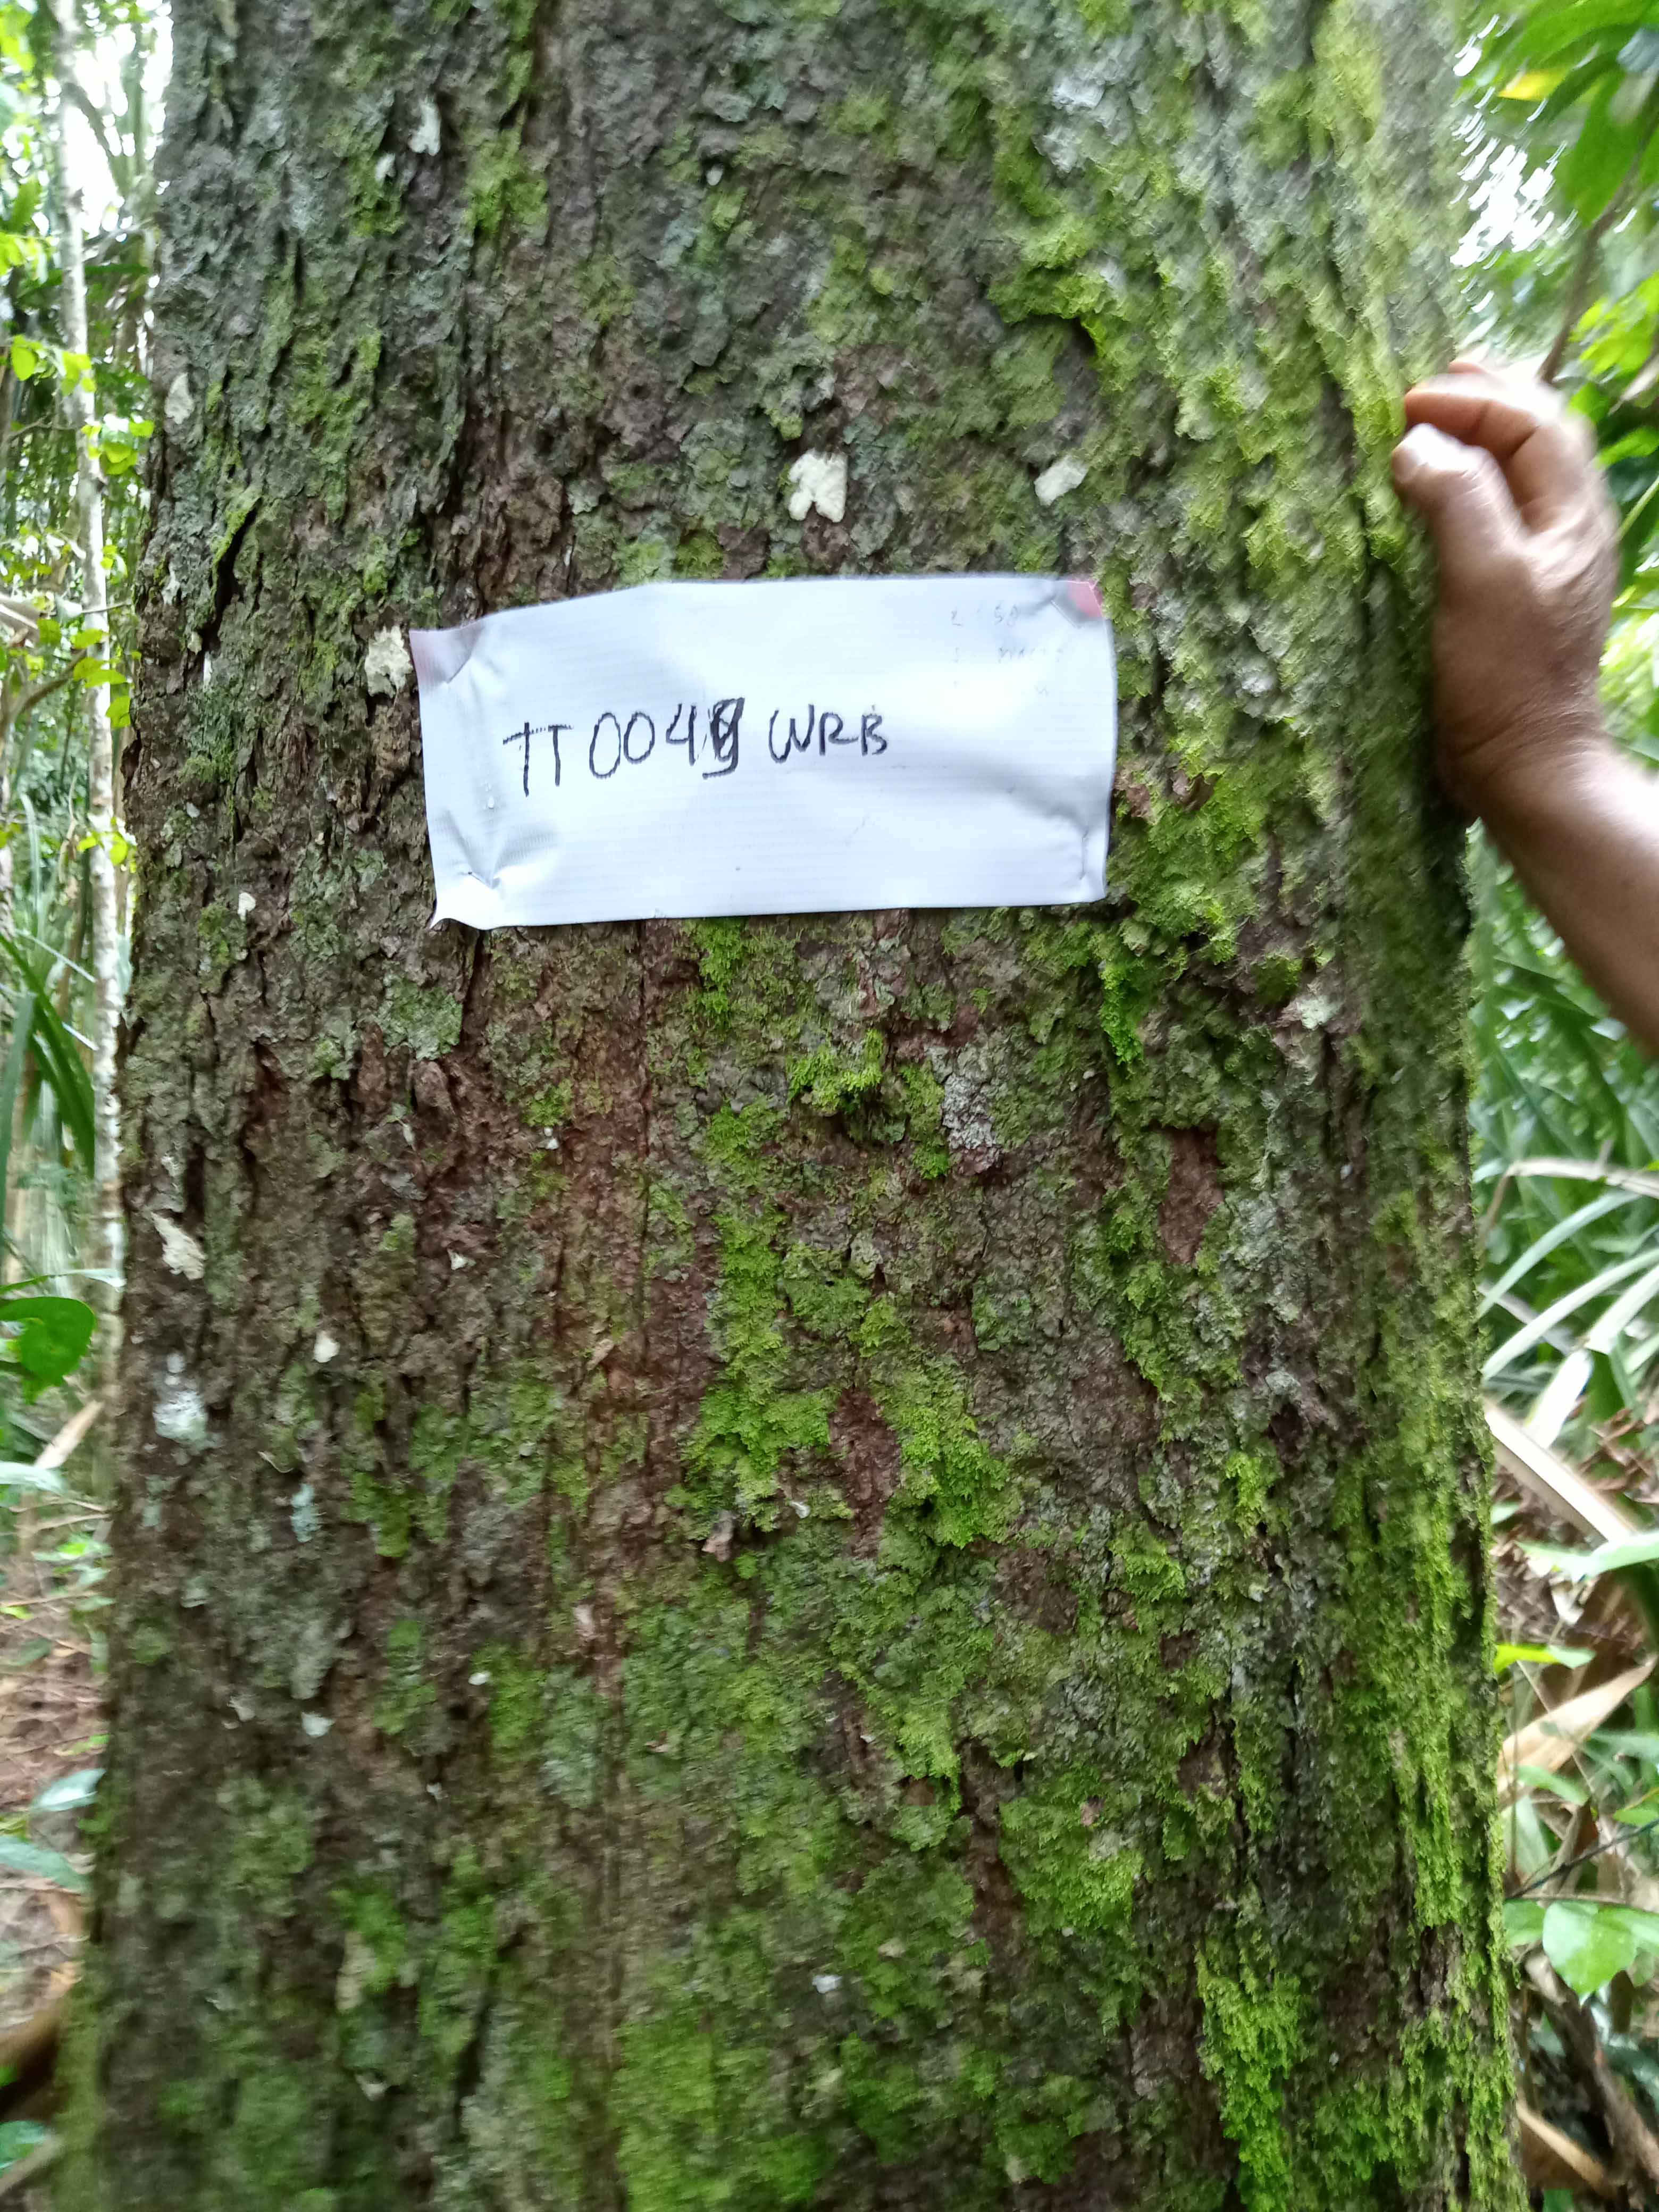 TT0049 WRB